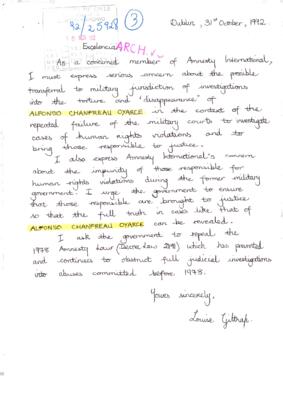 92/25928
3
Dublin, 31st October, 1992
Excelencia
ARCH
As a concerned member of Amnesty International,
I must express serious concern about the possible
transferral to military jurisdiction of investigations
into the torture and "disappearance" of
ALFONSO CHANFREAU OYARCE in the context of the
repeated failure of the military courts to investigate
cases of human rights violations and to
bring those responsible to justice.
I also express Amnesty International's concern
about the impunity of those responsible for
human rights violations during the former military
government. I urge the government to ensure
that those responsible are brought to justice
so that the full truth in cases like that of
ALFONSO CHANFREAU OYARCE can be revealed.
I ask the government to repeal the
1978 Amnesty Law (Decree Law 2191) which has prevented
and continues to obstruct full judicial investigations
into abuses committed before 1978.
Yours sincerely,
Louise